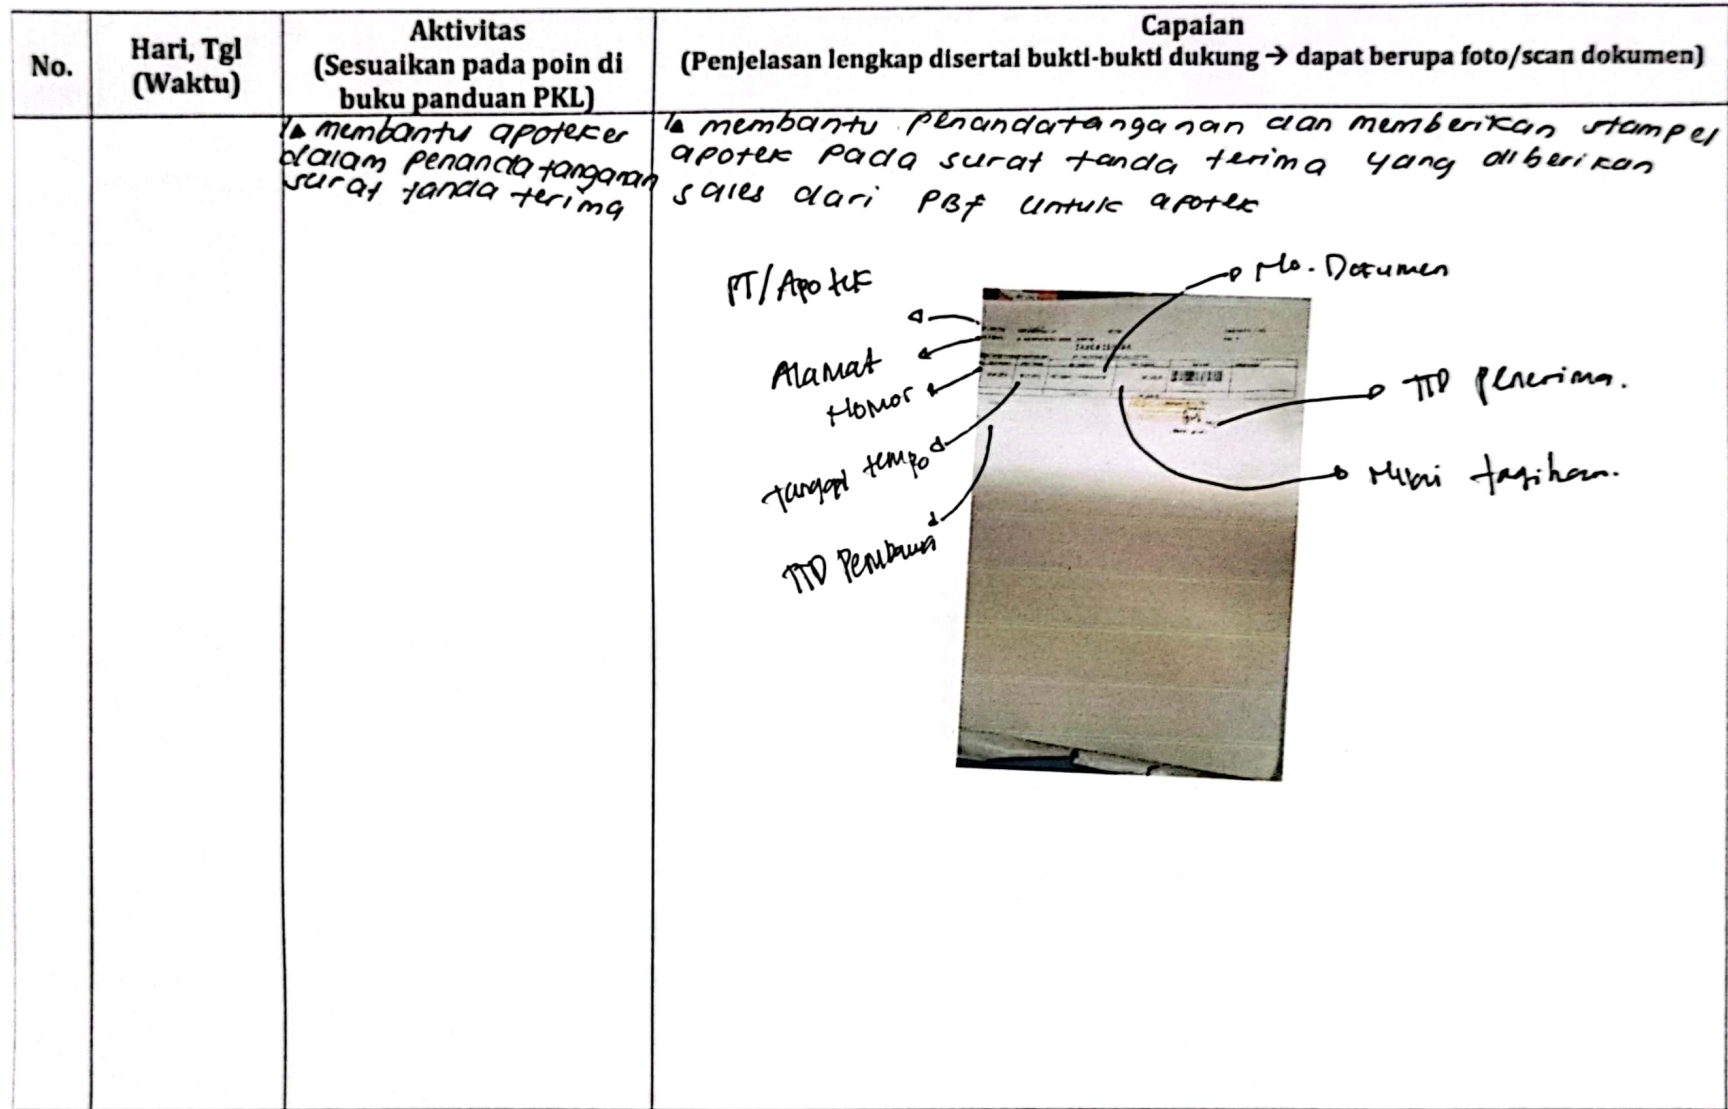 No.
Hari, Tgl
(Waktu)
Aktivitas
(Sesuaikan pada poin di
buku panduan PKL)
Capaian
(Penjelasan lengkap disertai bukti-bukti dukung → dapat berupa foto/scan dokumen)
membantu apoteker
dalam penandatanganan
surat tanda terima
membantu penandatanganan dan memberikan stampel
apotek pada surat tanda terima yang diberikan
sales dari PBF untuk apotek
PT/Apotek
No. Dokumen
Alamat
Nomor
TTD Penerima.
tanggal tempo
Nilai tagihan.
TTD Pembawa